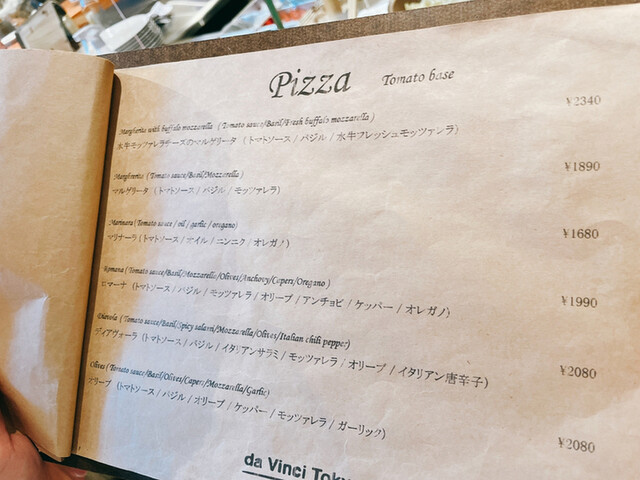 Pizza Tomato base
Margherita with buffalo mozzarella ( Tomato sauce/Basil/Fresh buffalo mozzarella ) ¥2340
水牛モッツァレラチーズのマルゲリータ (トマトソース / バジル / 水牛フレッシュモッツァレラ)
Margherita ( Tomato sauce/Basil/Mozzarella ) ¥1890
マルゲリータ (トマトソース / バジル / モッツァレラ)
Marinara (Tomato sauce / oil / garlic / oregano) ¥1680
マリナーラ (トマトソース / オイル / ニンニク / オレガノ)
Romana ( Tomato sauce/Basil/Mozzarella/Olives/Anchovy/Capers/Oregano ) ¥1990
ロマーナ (トマトソース / バジル / モッツァレラ / オリーブ / アンチョビ / ケッパー / オレガノ)
Diavola ( Tomato sauce/Basil/Spicy salami/Mozzarella/Olives/Italian chili pepper) ¥2080
ディアヴォーラ (トマトソース / バジル / イタリアンサラミ / モッツァレラ / オリーブ / イタリアン唐辛子)
Olives ( Tomato sauce/Basil/Olives/Capers/Mozzarella/Garlic) ¥2080
オリーブ (トマトソース / バジル / オリーブ / ケッパー / モッツァレラ / ガーリック)
da Vinci Toky